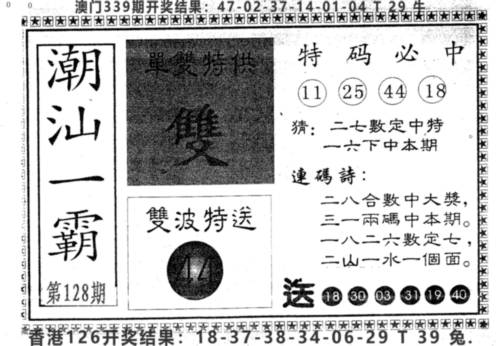 澳门339期开奖结果：47-02-37-14-01-04 T 29 牛
潮汕一霸
第128期
單雙特供
雙
雙波特送
44
特码必中
11 25 44 18
猜：二七數定中特
一六下中本期
連碼詩：
二八合數中大獎，
三一兩碼中本期。
一八二六數定七，
二山一水一個面。
送 18 30 03 31 19 40
香港126开奖结果：18-37-38-34-06-29 T 39 兔.